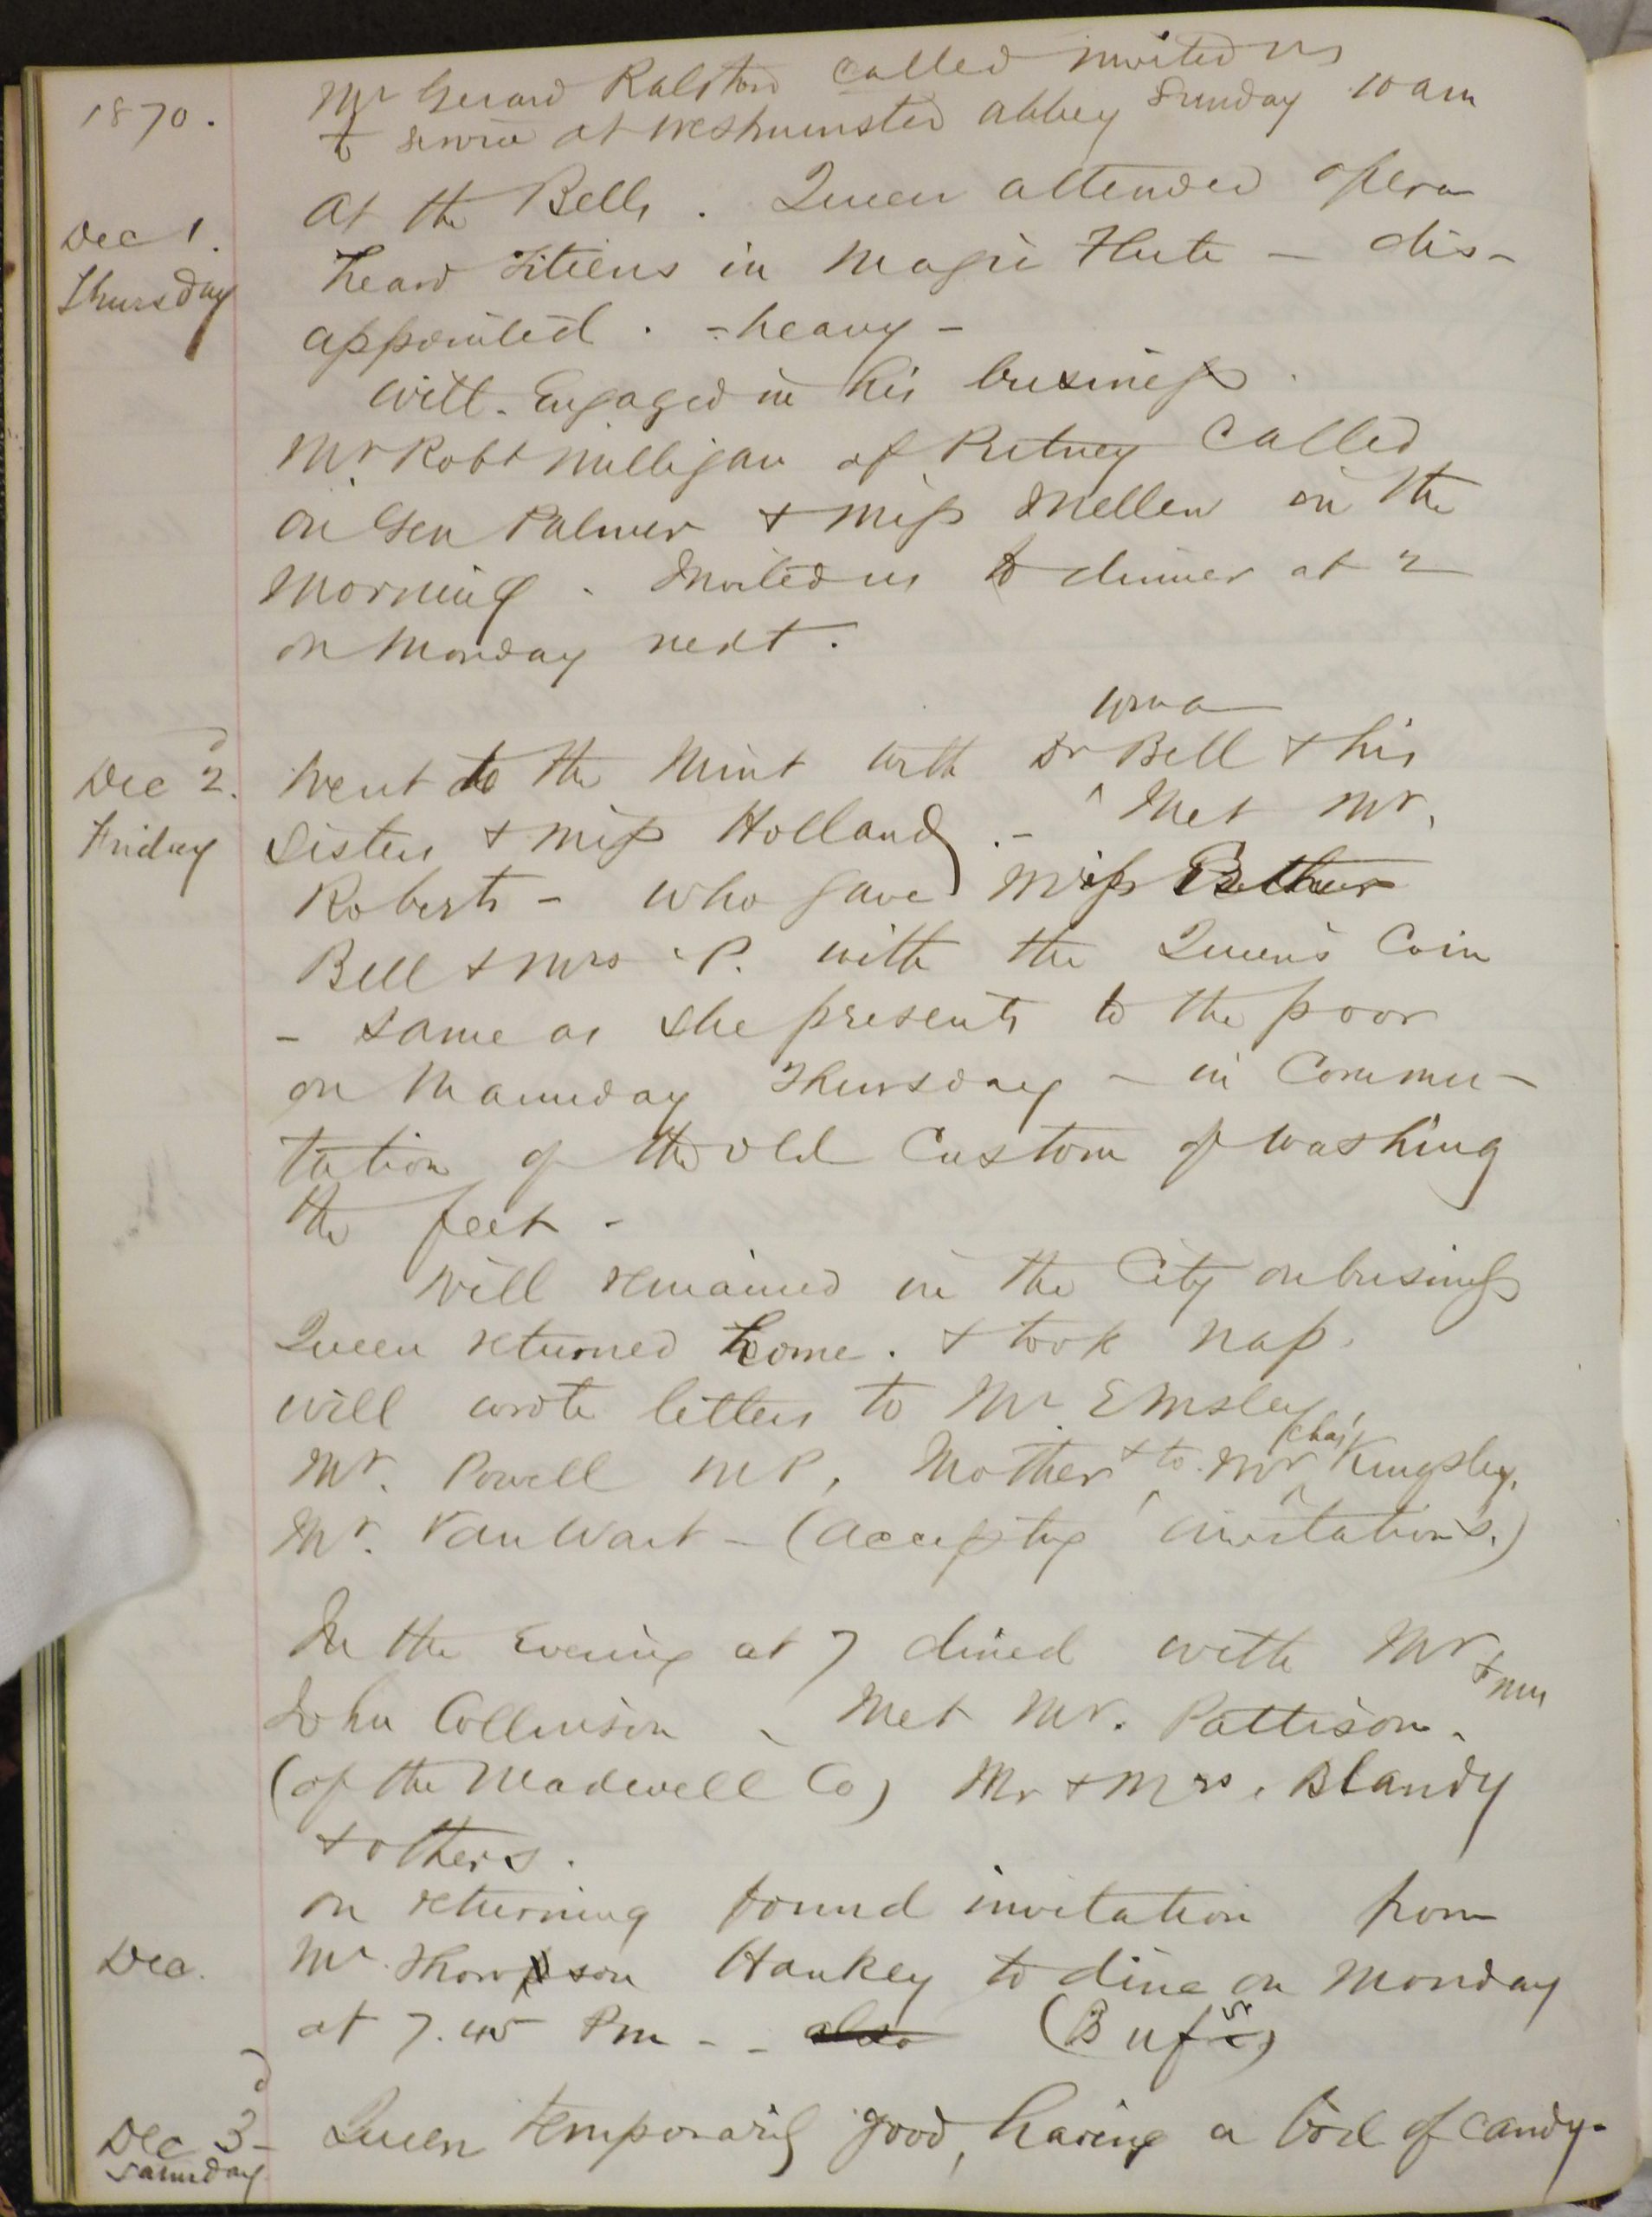 1870.
Mr Gerard Ralston called invited us
to service at Westminster Abbey Sunday 10 am
Dec 1.
Thursday
At the Bells. Queen attended opera
heard Titiens in Magic Flute – dis-
appointed. – heavy –
Will. Engaged in his business.
Mr Robt Milligan of Putney Called
on Gen Palmer & Miss Mellen in the
Morning. Invited us to dinner at 2
on Monday next.
Dec 2d.
Friday
Went to the Mint with Dr Bell & his
Sisters & Miss Holland. – Met Mr.
Roberts – who gave Miss
Bell & Mrs P. with the Queen's Coin
– same as she presents to the poor
on Maunday Thursday – in Commu-
tation of the old Custom of washing
the feet –
Will remained in the City on business
Queen returned home. & took nap.
Will wrote letters to Mr. Emsley,
Mr. Powell MP, Mother & to Mr Chas Kingsley,
Mr. Van Wart – (accepting invitations.)
In the Evening at 7 dined with Mr & Mrs
John Collinson – Met Mr. Pattison.
(of the Maxwell Co) Mr & Mrs. Blandy
& others.
on returning found invitation from
Dec.
Mr. Thomson Hankey to dine on Monday
at 7.45 Pm – – also
Dec 3d
Saturday
Queen temporarily good, having a box of candy.